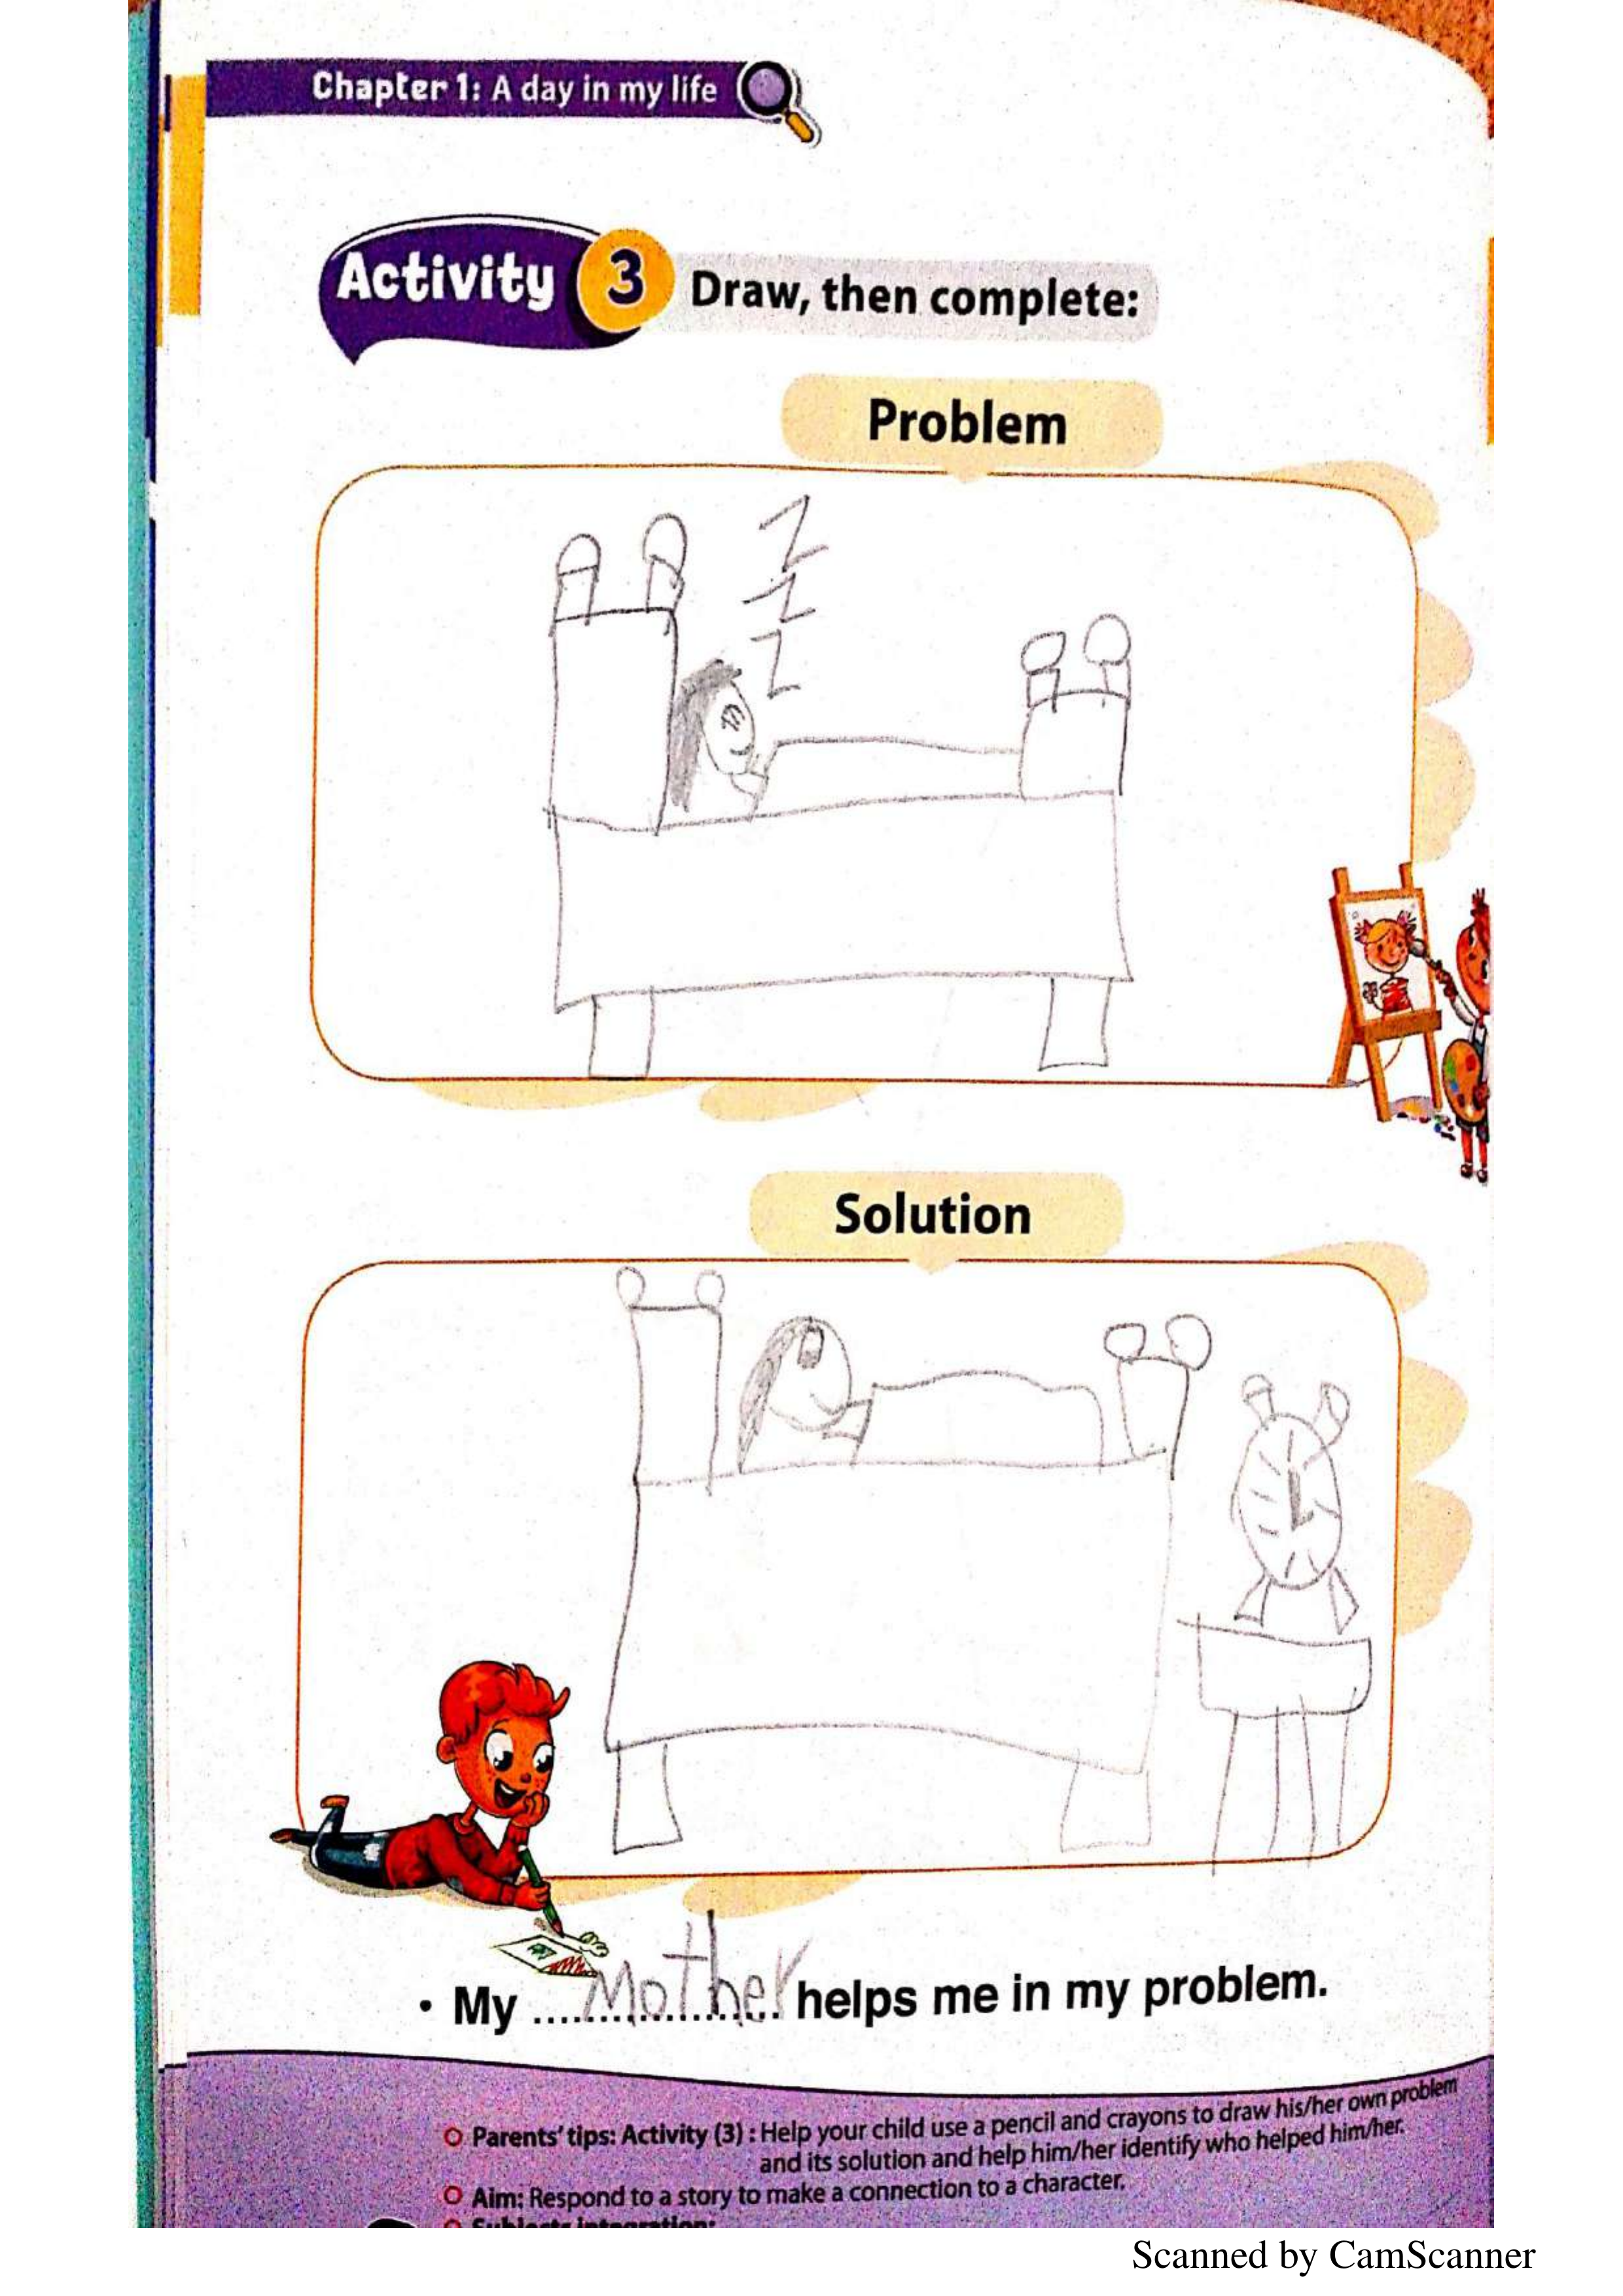 Chapter 1: A day in my life
Activity 3 Draw, then complete:
Problem
Z
Z
Z
Solution
• My ....Mother.... helps me in my problem.
Parents' tips: Activity (3) : Help your child use a pencil and crayons to draw his/her own problem
and its solution and help him/her identify who helped him/her.
Aim: Respond to a story to make a connection to a character.
Subjects integration:
Scanned by CamScanner